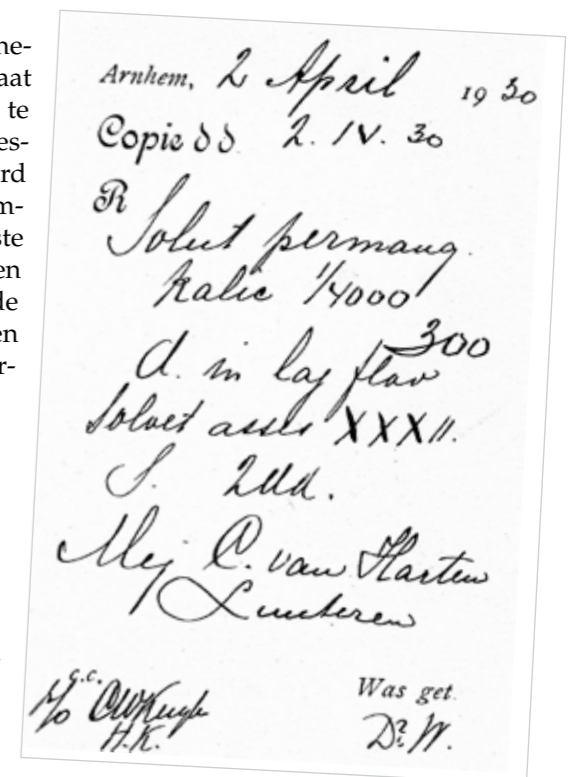 ne-
aat
te
es-
rd
m-
ste
en
de
en
r-
Arnhem, 2 April 1930
Copie dd 2. IV. 30
R
Solut permang.
Kalic 1/4000
300
d. in lag flav
Solvet asses XXXII.
S.
Mej C. van Harten
Lunteren
c.c.
H.K.
Was get.
Dr. W.